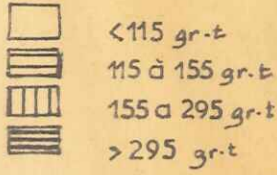 <115 gr.t
115 à 155 gr.t
155 a 295 gr.t
>295 gr.t